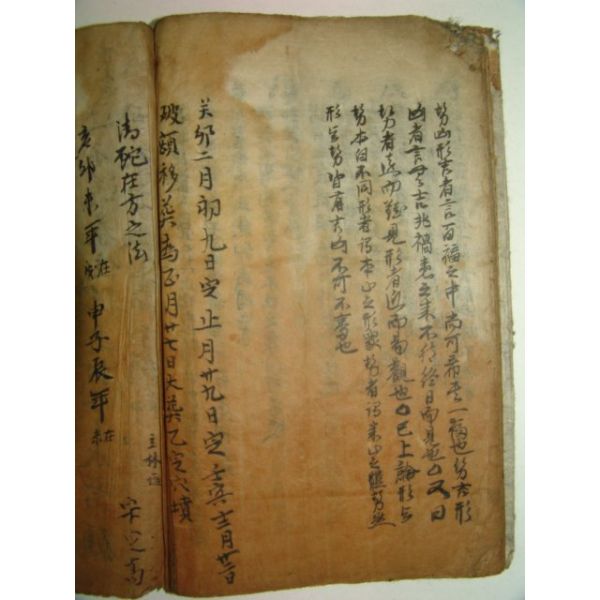 勢凶形吉者言百福之中尚可希冀一福也勢吉形
凶者言吉兆禍患之來不待終日而見也○又曰
勢者遠而難見形者近而易觀也○已上論形与
勢本自不同形者謂本山之形象勢者謂來山之體勢然
形与勢皆有吉凶不可不審也
癸卯二月初九日定正月廿九日定壬寅十二月廿二日
破額移葬正月廿七日大葬乙定穴墳
砲在方之法
亥卯未年在申子辰年在未